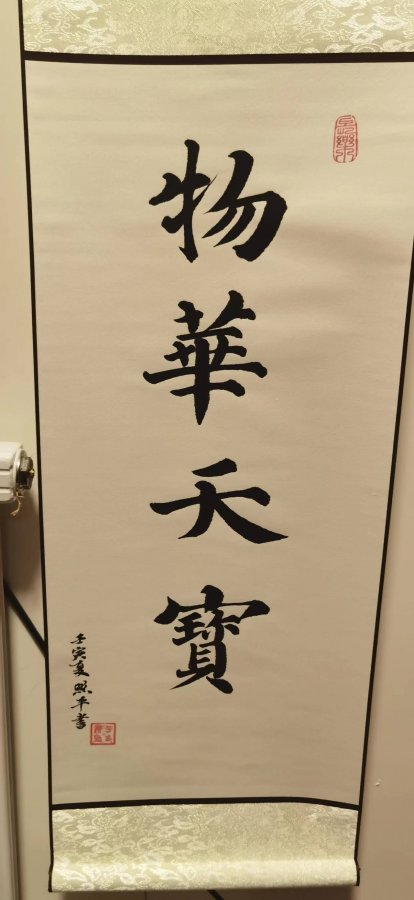 物華天寶
壬寅夏熙平書